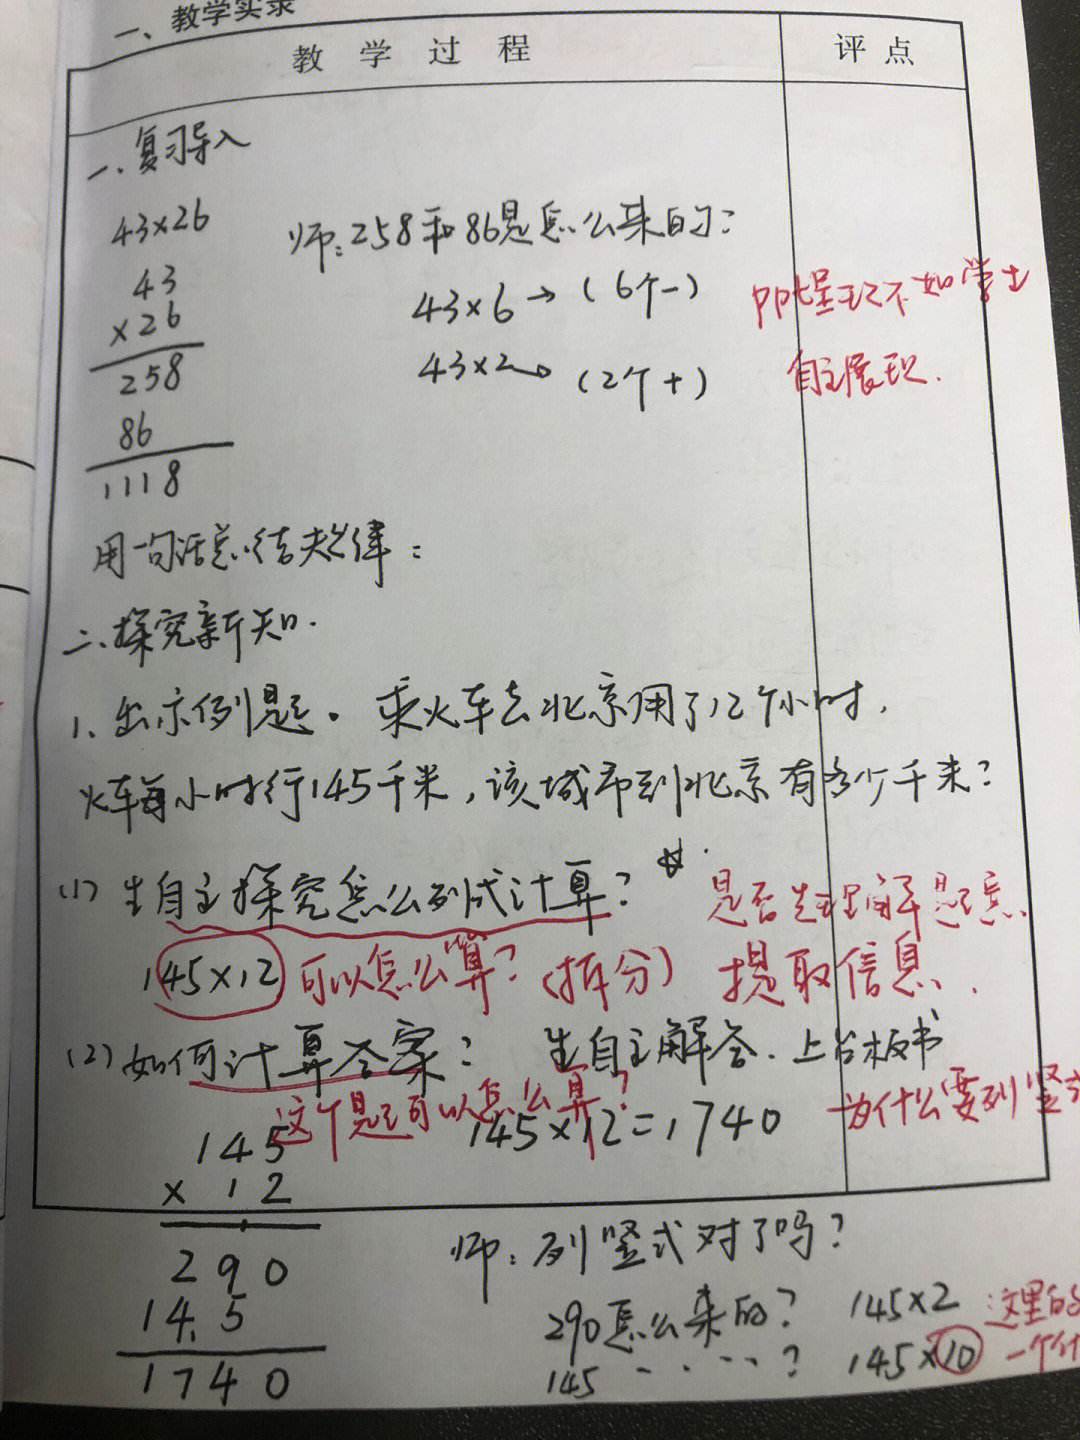 一、教学实录
教学过程 评点
一、复习导入
43×26 师:258和86是怎么来的?
43 43×6→(6个一) ppt呈现不如学生
×26
258 43×20 (2个十) 自主展现.
86
1118
用一句话总结规律:
二、探究新知.
1、出示例题。乘火车去北京用了12个小时,
火车每小时行145千米,该城市到北京有多少千米?
(1)生自主探究怎么列式计算? 是否先理解题意
145×12 可以怎么算?(拆分) 提取信息.
(2)如何计算答案? 生自主解答.上台板书
这个题可以怎么算? 为什么要列竖式
145 145×12=1740
×12
290 师:列竖式对了吗?
145 290怎么来的? 145×2 这里的
1740 145 ·····? 145×10 一个